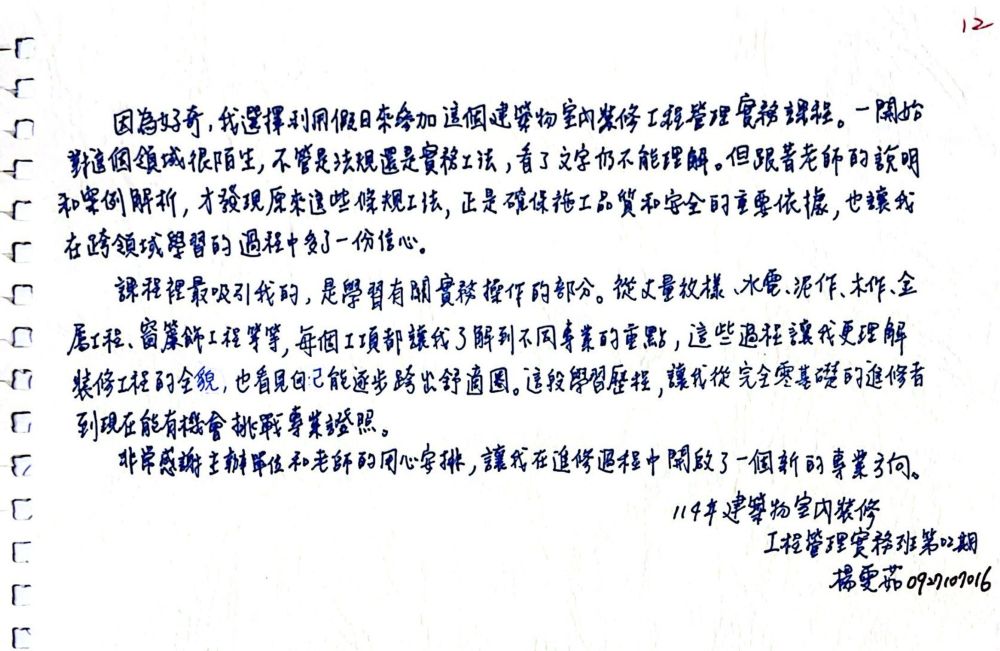 12
因為好奇，我選擇利用假日來參加這個建築物室內裝修工程管理實務課程。一開始
對這個領域很陌生，不管是法規還是實務工法，看了文字仍不能理解。但跟著老師的說明
和案例解析，才發現原來這些條規工法，正是確保施工品質和安全的重要依據，也讓我
在跨領域學習的過程中多了一份信心。
課程裡最吸引我的，是學習有關實務操作的部分。從丈量放樣、水電、泥作、木作、金
屬工程、窗簾飾工程等等，每個工項都讓我了解到不同專業的重點，這些過程讓我更理解
裝修工程的全貌，也看見自己能逐步跨出舒適圈。這段學習歷程，讓我從完全零基礎的進修者
到現在能有機會挑戰專業證照。
非常感謝主辦單位和老師的用心安排，讓我在進修過程中開啟了一個新的專業方向。
114年建築物室內裝修
工程管理實務班第02期
楊雯茹 0927107016